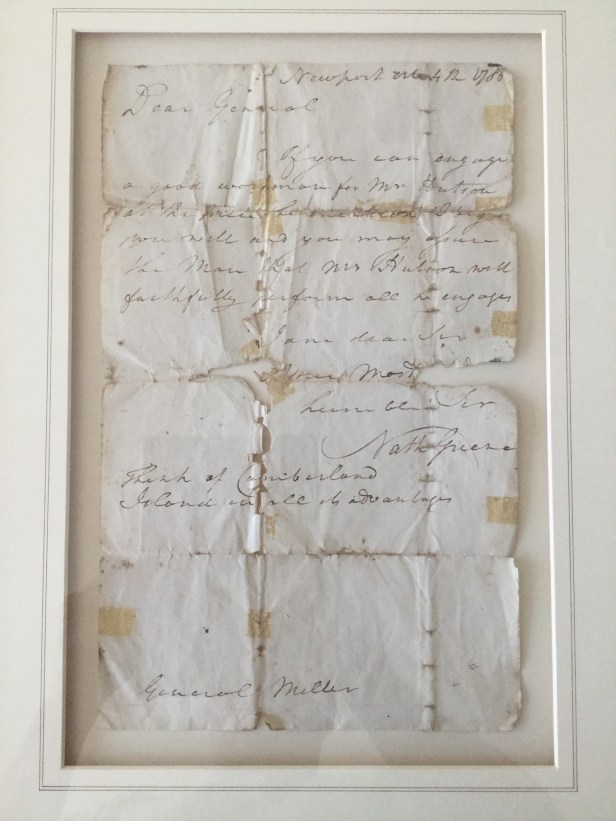 Newport 4th 178
Dear General
If you can engage
a good workman for Mr Hutson
at the price he mentions I
you will and you may assure
the Man that Mr Hutson will
faithfully perform all he engages
I am dear Sir
Your Most
humble Sir
Nath Greene
Think of Cumberland
Island in all its advantages
General Miller